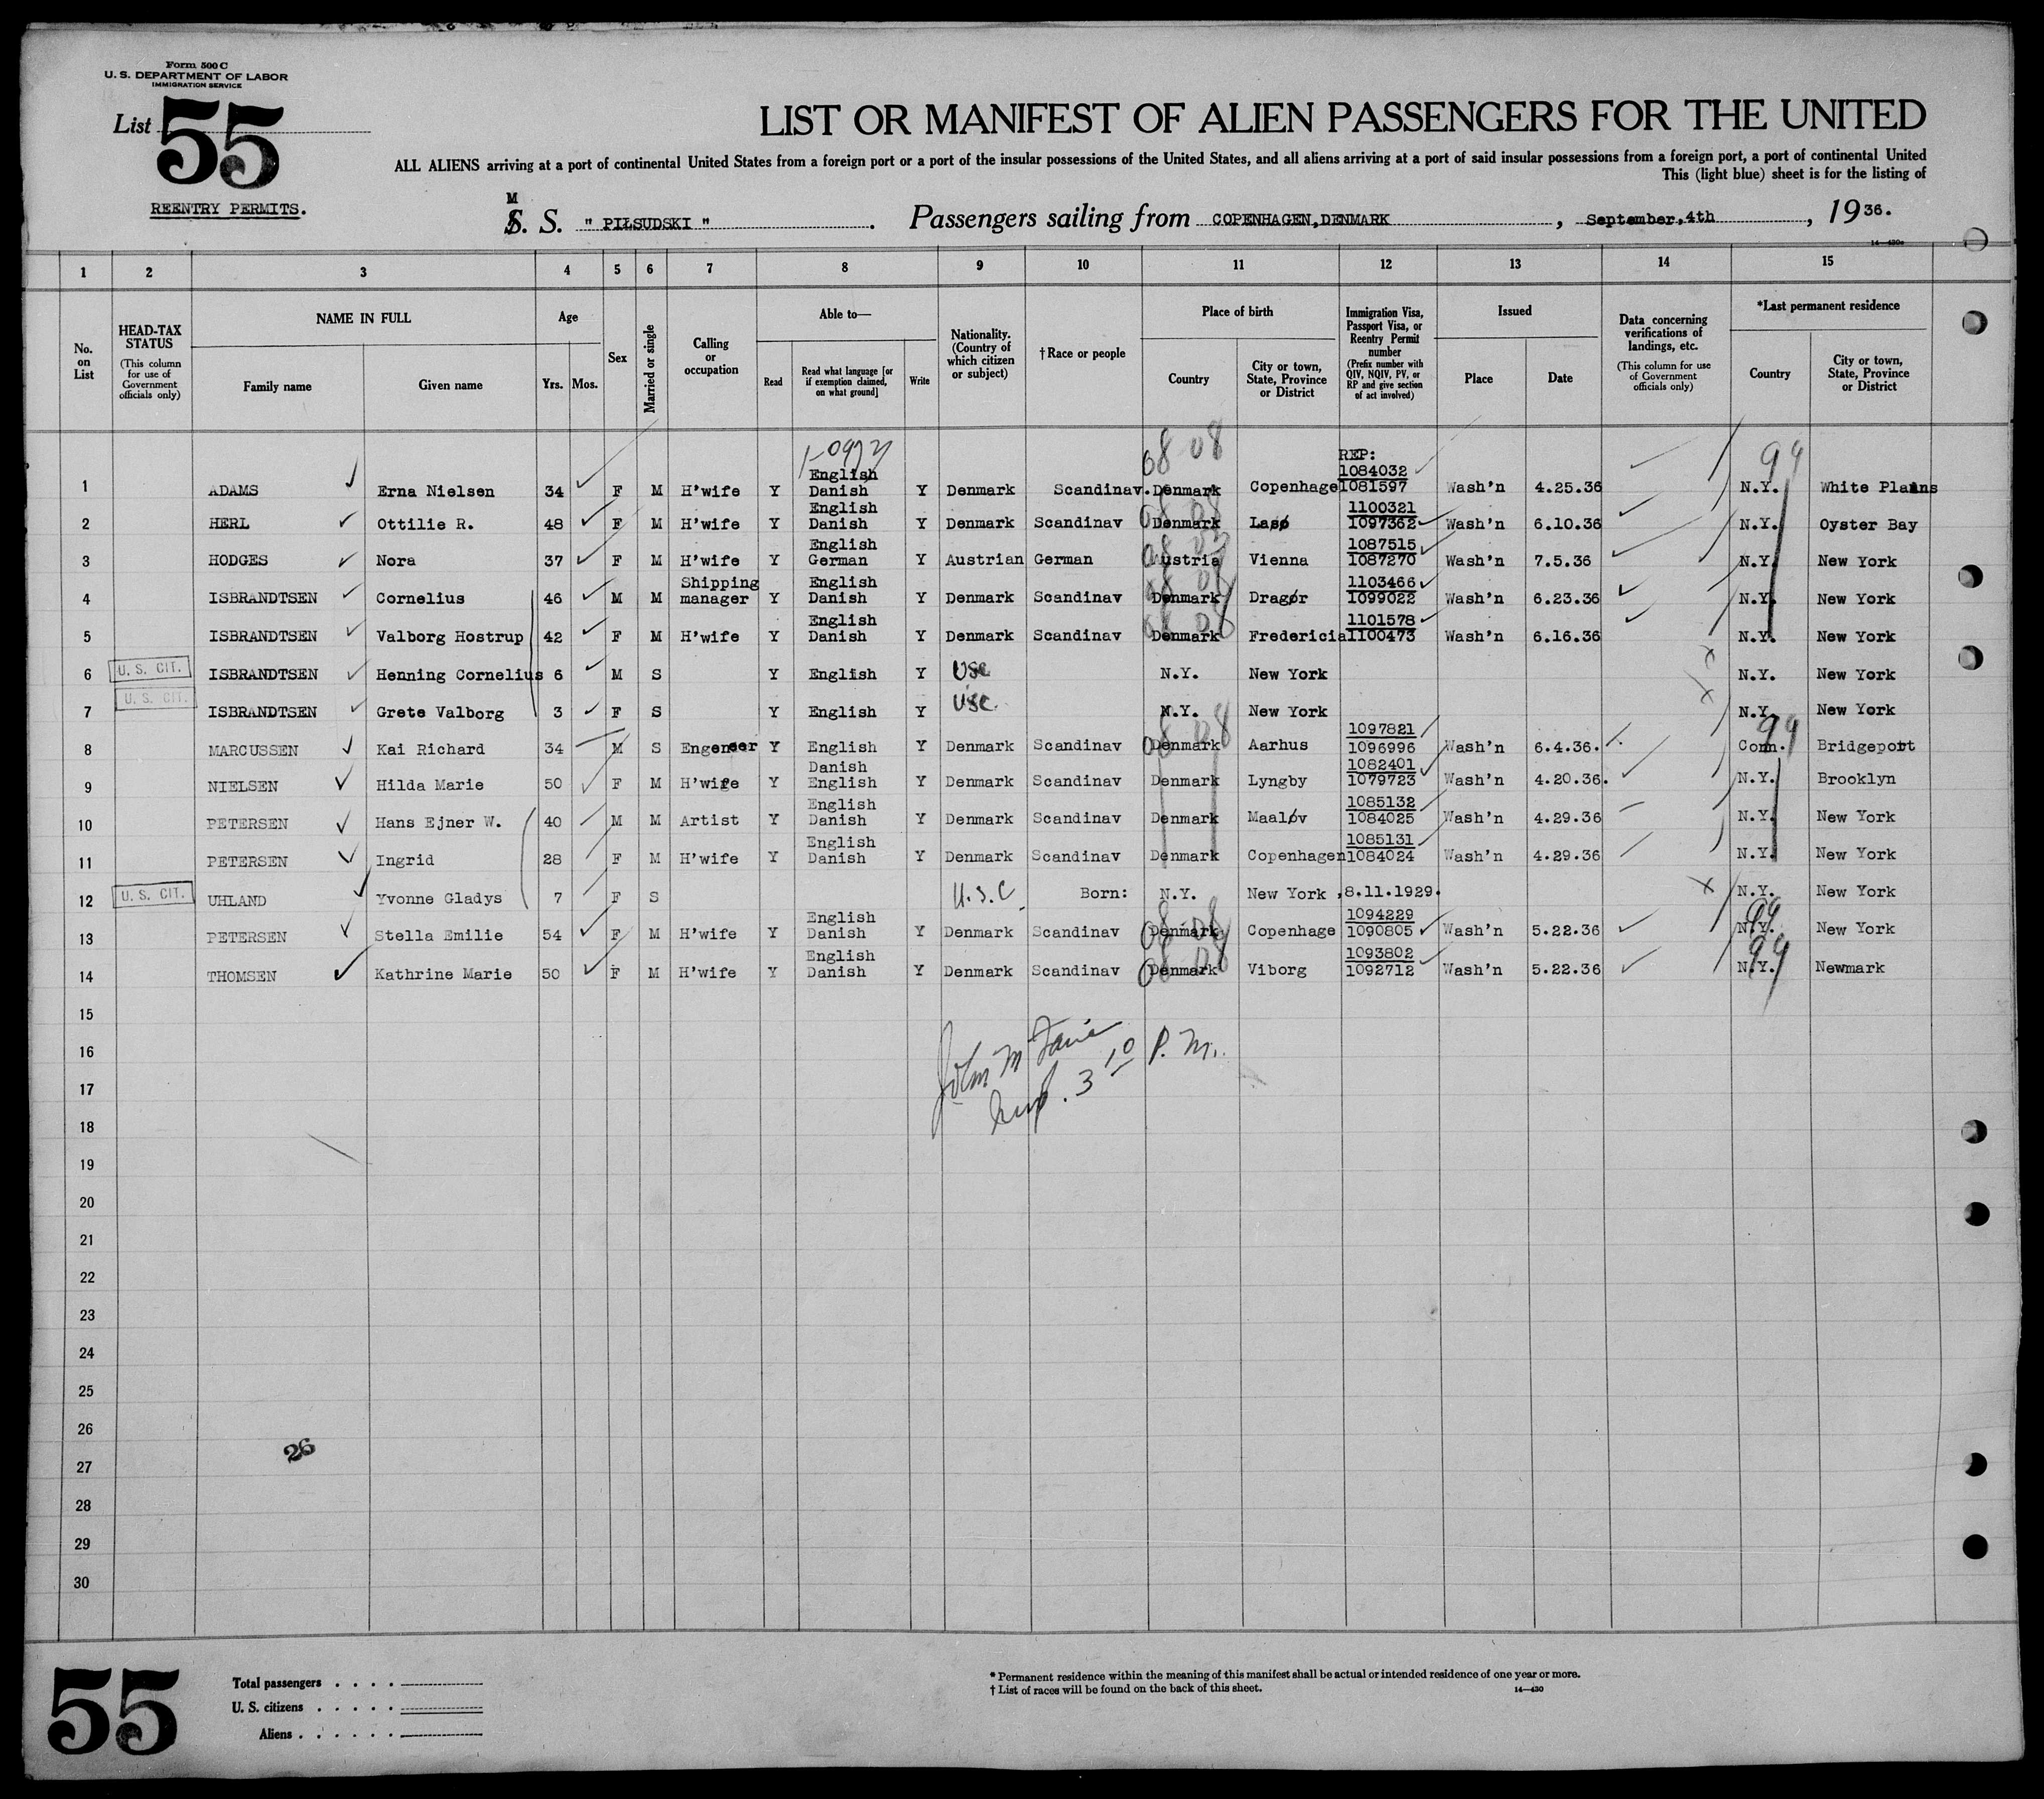 Form 500 C
U. S. DEPARTMENT OF LABOR
IMMIGRATION SERVICE
List 55
REENTRY PERMITS.
LIST OR MANIFEST OF ALIEN PASSENGERS FOR THE UNITED
ALL ALIENS arriving at a port of continental United States from a foreign port or a port of the insular possessions of the United States, and all aliens arriving at a port of said insular possessions from a foreign port, a port of continental United
This (light blue) sheet is for the listing of
M
S. S. " PIŁSUDSKI ". Passengers sailing from COPENHAGEN,DENMARK, September,4th, 1936.
14—430c
1 2 3 4 5 6 7 8 9 10 11 12 13 14 15
No. on List
HEAD-TAX STATUS (This column for use of Government officials only)
NAME IN FULL Family name Given name
Age Yrs. Mos.
Sex
Married or single
Calling or occupation
Able to— Read Read what language [or if exemption claimed, on what ground] Write
Nationality. (Country of which citizen or subject)
† Race or people
Place of birth Country City or town, State, Province or District
Immigration Visa, Passport Visa, or Reentry Permit number (Prefix number with QIV, NQIV, PV, or RP and give section of act involved)
Issued Place Date
Data concerning verifications of landings, etc. (This column for use of Government officials only)
*Last permanent residence Country City or town, State, Province or District
08 08 99
REP:
1 ADAMS Erna Nielsen 34 F M H'wife Y English Danish Y Denmark Scandinav. Denmark Copenhage 1084032 1081597 Wash'n 4.25.36 N.Y. White Plains
2 HERL Ottilie R. 48 F M H'wife Y English Danish Y Denmark Scandinav Denmark Lasø 1100321 1097362 Wash'n 6.10.36 N.Y. Oyster Bay
3 HODGES Nora 37 F M H'wife Y English German Y Austrian German Austria Vienna 1087515 1087270 Wash'n 7.5.36 N.Y. New York
4 ISBRANDTSEN Cornelius 46 M M Shipping manager Y English Danish Y Denmark Scandinav Denmark Dragør 1103466 1099022 Wash'n 6.23.36 N.Y. New York
5 ISBRANDTSEN Valborg Hostrup 42 F M H'wife Y English Danish Y Denmark Scandinav Denmark Fredericia 1101578 1100473 Wash'n 6.16.36 N.Y. New York
6 U. S. CIT. ISBRANDTSEN Henning Cornelius 6 M S Y English Y USC N.Y. New York N.Y. New York
7 U. S. CIT. ISBRANDTSEN Grete Valborg 3 F S Y English Y USC. N.Y. New York N.Y. New York
8 MARCUSSEN Kai Richard 34 M S Engeneer Y English Y Denmark Scandinav 08 08 Denmark Aarhus 1097821 1096996 Wash'n 6.4.36. 99 Conn. Bridgeport
9 NIELSEN Hilda Marie 50 F M H'wife Y Danish English Y Denmark Scandinav Denmark Lyngby 1082401 1079723 Wash'n 4.20.36. N.Y. Brooklyn
10 PETERSEN Hans Ejner W. 40 M M Artist Y English Danish Y Denmark Scandinav Denmark Maaløv 1085132 1084025 Wash'n 4.29.36 N.Y. New York
11 PETERSEN Ingrid 28 F M H'wife Y English Danish Y Denmark Scandinav Denmark Copenhagen 1085131 1084024 Wash'n 4.29.36 N.Y. New York
12 U. S. CIT. UHLAND Yvonne Gladys 7 F S U.S.C. Born: N.Y. New York ,8.11.1929. N.Y. New York
13 PETERSEN Stella Emilie 54 F M H'wife Y English Danish Y Denmark Scandinav 08-08 Denmark Copenhage 1094229 1090805 Wash'n 5.22.36 99 N.Y. New York
14 THOMSEN Kathrine Marie 50 F M H'wife Y English Danish Y Denmark Scandinav 08-08 Denmark Viborg 1093802 1092712 Wash'n 5.22.36 99 N.Y. Newmark
15
16
17
18
19
20
21
22
23
24
25
26
27
28
29
30
John M
3 10 P. M.
26
55
Total passengers
U. S. citizens
Aliens
* Permanent residence within the meaning of this manifest shall be actual or intended residence of one year or more.
† List of races will be found on the back of this sheet.
14—430